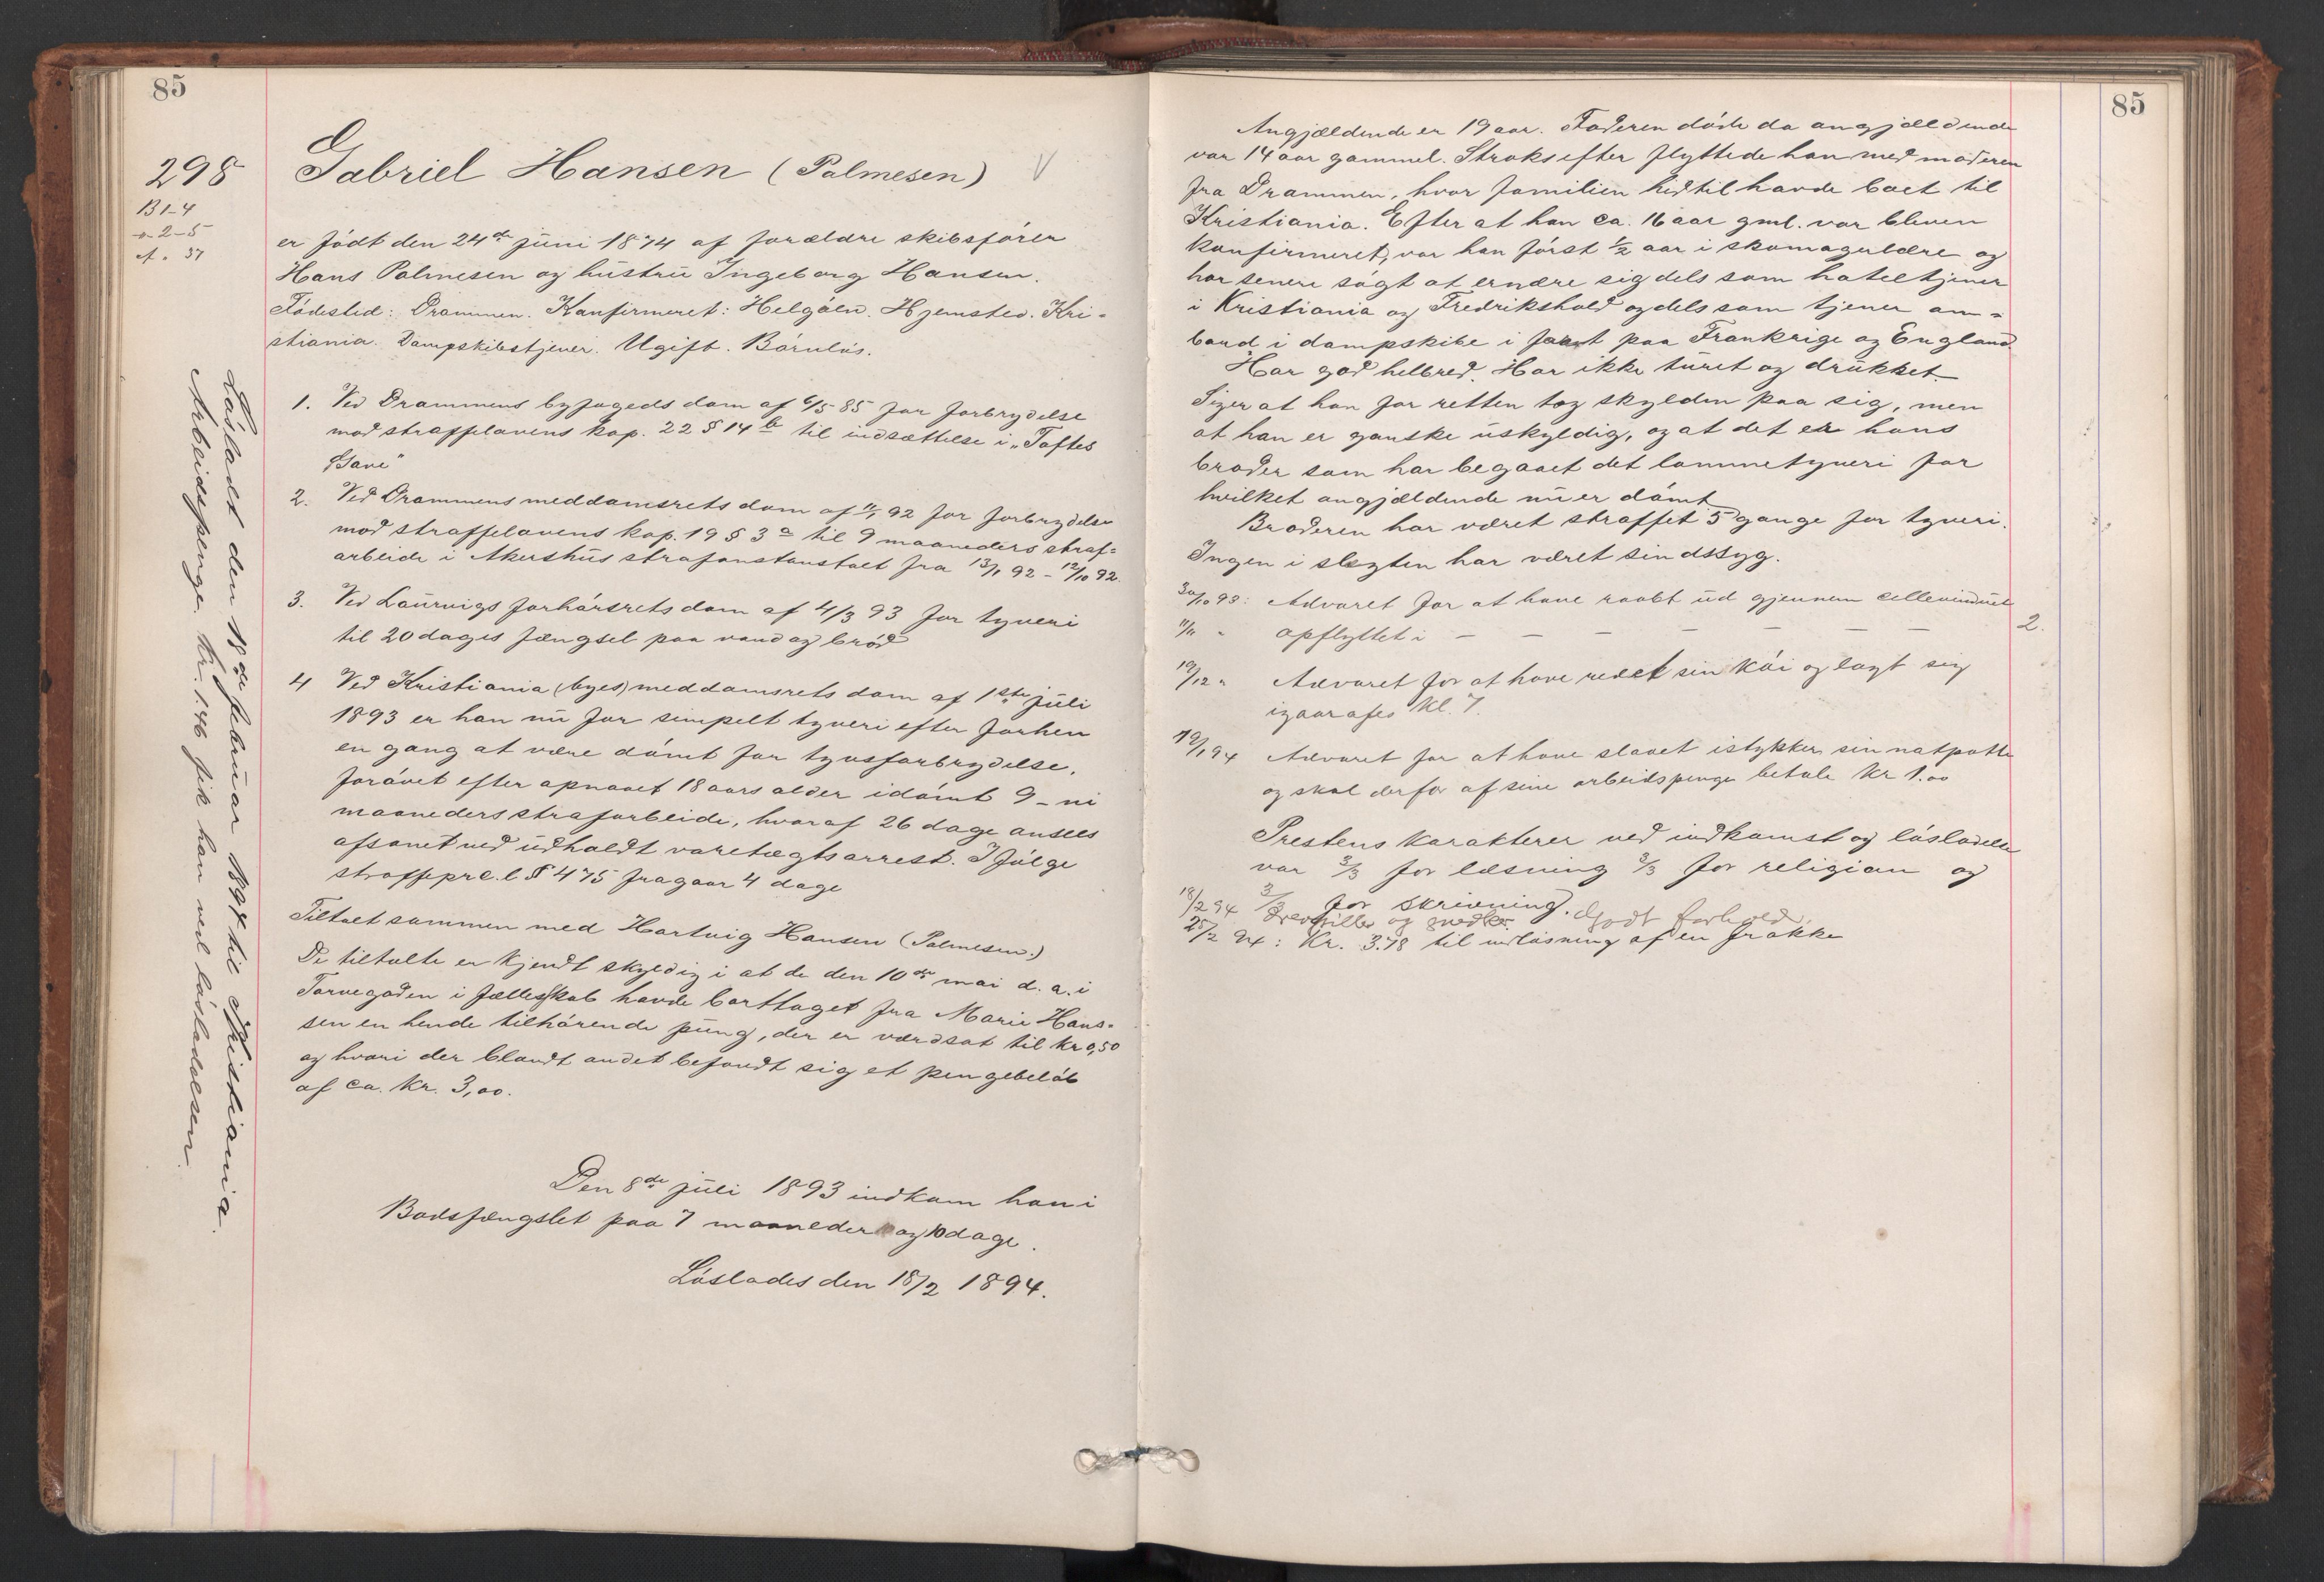 85
298
B 1-4
-"- 2-5
A. 37
Gabriel Hansen (Palmesen) V
er födt den 24de juni 1874 af forældre skibsförer
Hans Palmesen og hustru Ingeborg Hansen.
Födested: Drammen. Konfirmeret: Helgöen. Hjemsted. Kri-
stiania. Dampskibstjener. Ugift. Barnlös.
1. Ved Drammens byfogeds dom af 6/5 85 for forbrydelse
mod straffelovens kap. 22 § 14 b til indsættelse i "Toftes
Gave"
2. Ved Drammens meddomsrets dom af 11/1 92 for forbrydelse
mod straffelovens kap. 19 § 3 a til 9 maaneders straf-
arbeide i Akershus strafanstanstalt fra 13/1 92 - 12/10 92.
3. Ved Laurvigs forhörsrets dom af 4/3 93 for tyveri
til 20 dages fængsel paa vand og bröd
4 Ved Kristiania (byes) meddomsrets dom af 1ste juli
1893 er han nu for simpelt tyveri efter forhen
en gang at være dömt for tyvsforbrydelse,
forövet efter opnaaet 18 aars alder idömt 9 - ni
maaneders strafarbeide, hvoraf 26 dage ansees
afsonet ved udholdt varetægtsarrest. I fölge
straffeprc.l § 475 fragaar 4 dage
Tiltalt sammen med Hartvig Hansen (Palmesen.)
De tiltalte er kjendt skyldig i at de den 10de mai d.a. i
Torvegaden i fællesskab havde borttaget fra Marie Han-
sen en hende tilhörende pung, der er værdsat til kr 0,50
og hvori der blandt andet befandt sig et pengebelöb
af ca. kr. 3,00.
Den 8de juli 1893 indkom han i
Bodsfængslet paa 7 maaneder og 10 dage.
Löslades den 18/2 1894.
Lösladt den 18de februar 1894 til Kristiania.
Arbeidspenge kr. 1.46 fik han ved lösladelsen.
85
Angjældende er 19 aar. Faderen döde da angjældende
var 14 aar gammel. Straks efter flyttede han med moderen
fra Drammen, hvor familien hidtil havde boet til
Kristiania. Efter at han ca. 16 aar gml. var bleven
konfirmeret, var han först 1/2 aar i skomagerlære og
har senere sögt at ernære sig dels som hoteltjener
i Kristiania og Fredrikshald og dels som tjener om-
bord i dampskibe i fart paa Frankrige og England.
Har god helbred. Har ikke turet og drukket.
Siger at han for retten tog skylden paa sig, men
at han er ganske uskyldig, og at det er hans
broder som har begaaet det lommetyveri for
hvilket angjældende nu er dömt.
Broderen har været straffet 5 gange for tyveri.
Ingen i slegten har været sindssyg.
30/10 93: Advaret for at have raabt ud gjennem cellevinduet
11/11 " opflyttet i - - - - - - - 2.
19/12 " Advaret for at have redet sin köi og lagt sig
igaaraftes kl. 7.
19/1 94 Advaret for at have slaaet istykker sin natpotte
og skal derfor af sine arbeidspenge betale kr 1.00
Prestens karakterer ved indkomst og lösladelse
var 3/3 for læsning 3/3 for religion og
3/3 for skrivning.
18/2 94 og snedker. Godt forhold.
28/2 94: Kr. 3.78 til indlösning af en frakke